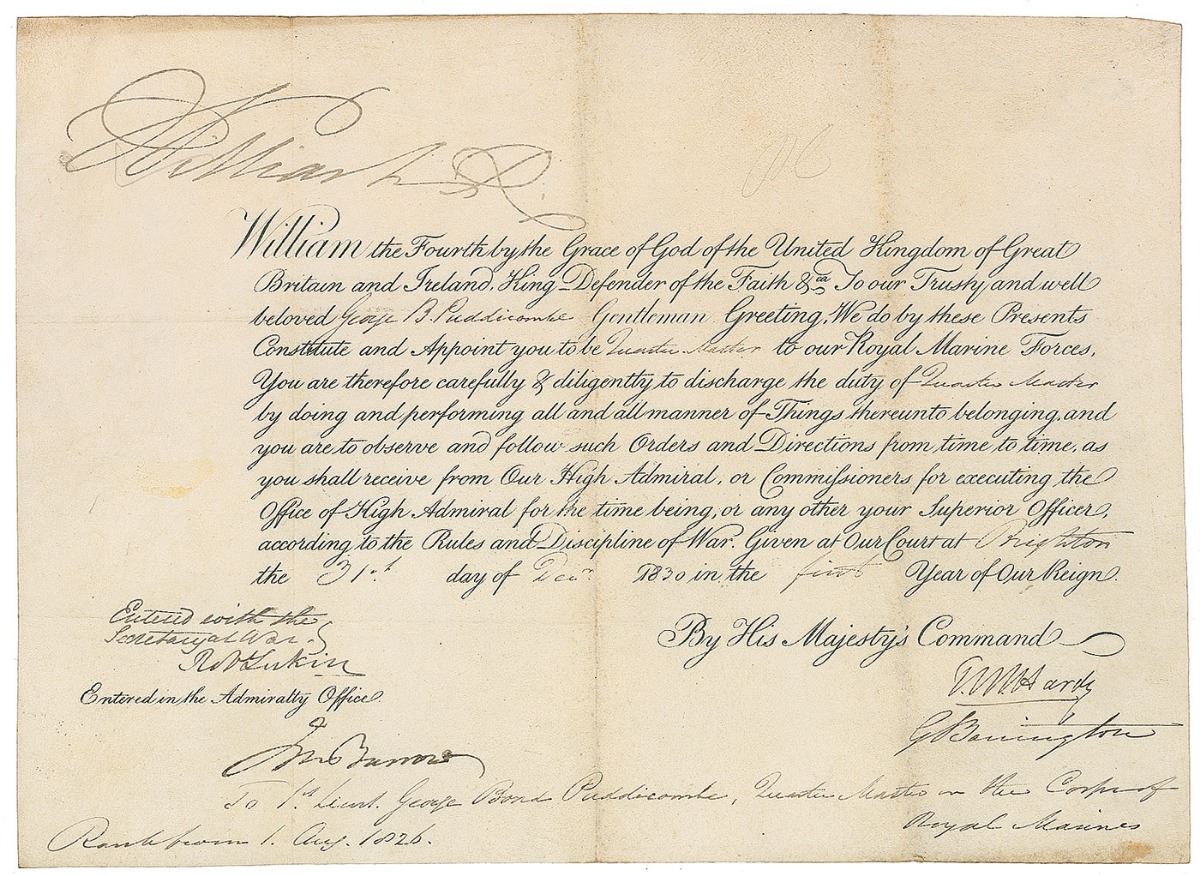 William R
William the Fourth by the Grace of God of the United Kingdom of Great
Britain and Ireland, King Defender of the Faith &ca To our Trusty and well
beloved George B. Puddicombe Gentleman Greeting, We do by these Presents
Constitute and Appoint you to be Quarter Master to our Royal Marine Forces,
You are therefore carefully & diligently to discharge the duty of Quarter Master
by doing and performing all and all manner of Things thereunto belonging, and
you are to observe and follow such Orders and Directions from time to time, as
you shall receive from Our High Admiral, or Commissioners for executing the
Office of High Admiral for the time being, or any other your Superior Officer,
according to the Rules and Discipline of War. Given at Our Court at Brighton
the 31st day of Decr 1830 in the first Year of Our Reign.
Entered with the
Secretary at War.
Rob Lukin
By His Majesty's Command
Entered in the Admiralty Office.
T. M. Hardy
G Barrington
Jno Barrow
To 1st Lieut. George Bond Puddicombe, Quarter Master in the Corps of
Royal Marines
Rank from 1. Aug. 1826.